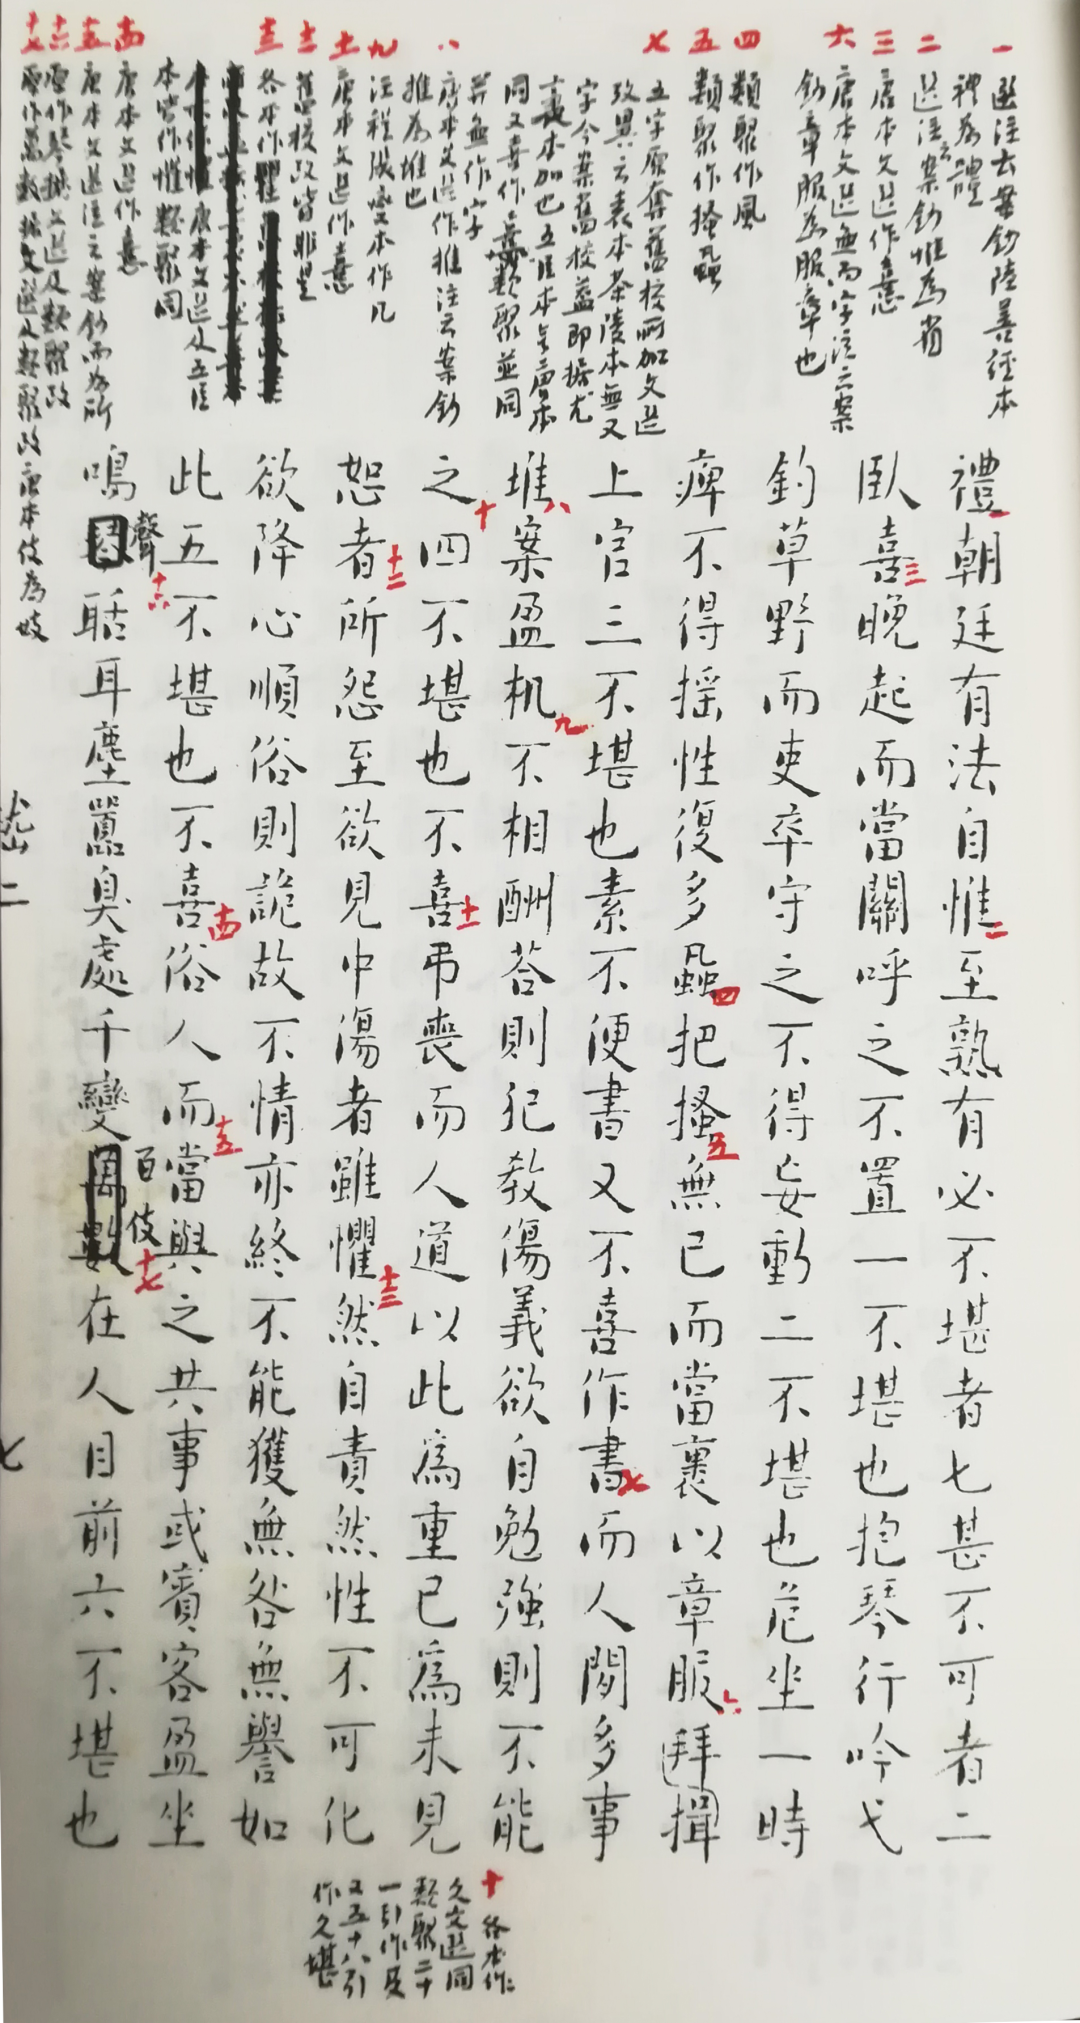 一
選注云案鈔陸善經本
禮為體
二
選注云案鈔惟為省
三
唐本文選作憙
六
唐本文選無而字注云案
鈔章服為服章也
四
類聚作風
五
類聚作搔蝨
七
五字原奪舊校所加文選
攷異云袁本茶陵本無又
字今案舊校蓋即據尤
袤本加也五臣本
同又喜作憙類聚並同
并無作字
八
唐本文選作推注云案鈔
推為堆也
九
注程榮本作几
十一
唐本文選作憙
十二
舊校改皆非是
十三
各本作瞿
唐本文選及五臣
本皆作懼類聚同
十四
唐本文選作憙
十五
唐本文選注云案鈔而為所
十六
原作琴據文選及類聚改
十七
原作萬數據文選及類聚改唐本伎為妓
禮一朝廷有法自惟二至熟有必不堪者七甚不可者二
臥喜三晚起而當關呼之不置一不堪也抱琴行吟弋
釣草野而吏卒守之不得妄動二不堪也危坐一時
痺不得搖性復多蝨四把搔五無已而當裹以章服六拜揖
上官三不堪也素不便書又不喜作書七而人間多事
堆八案盈机九不相酬荅則犯教傷義欲自勉強則不能
之十四不堪也不喜十一弔喪而人道以此為重已為未見
恕者十二所怨至欲見中傷者雖懼十三然自責然性不可化
欲降心順俗則詭故不情亦終不能獲無咎無譽如
此五不堪也不喜十四俗人而十五當與之共事或賓客盈坐
鳴聲十六聒耳塵囂臭處千變百伎十七在人目前六不堪也
嵇二
七
十
各本作久文選同
類聚二十
一引作及
又五十八引
作久堪